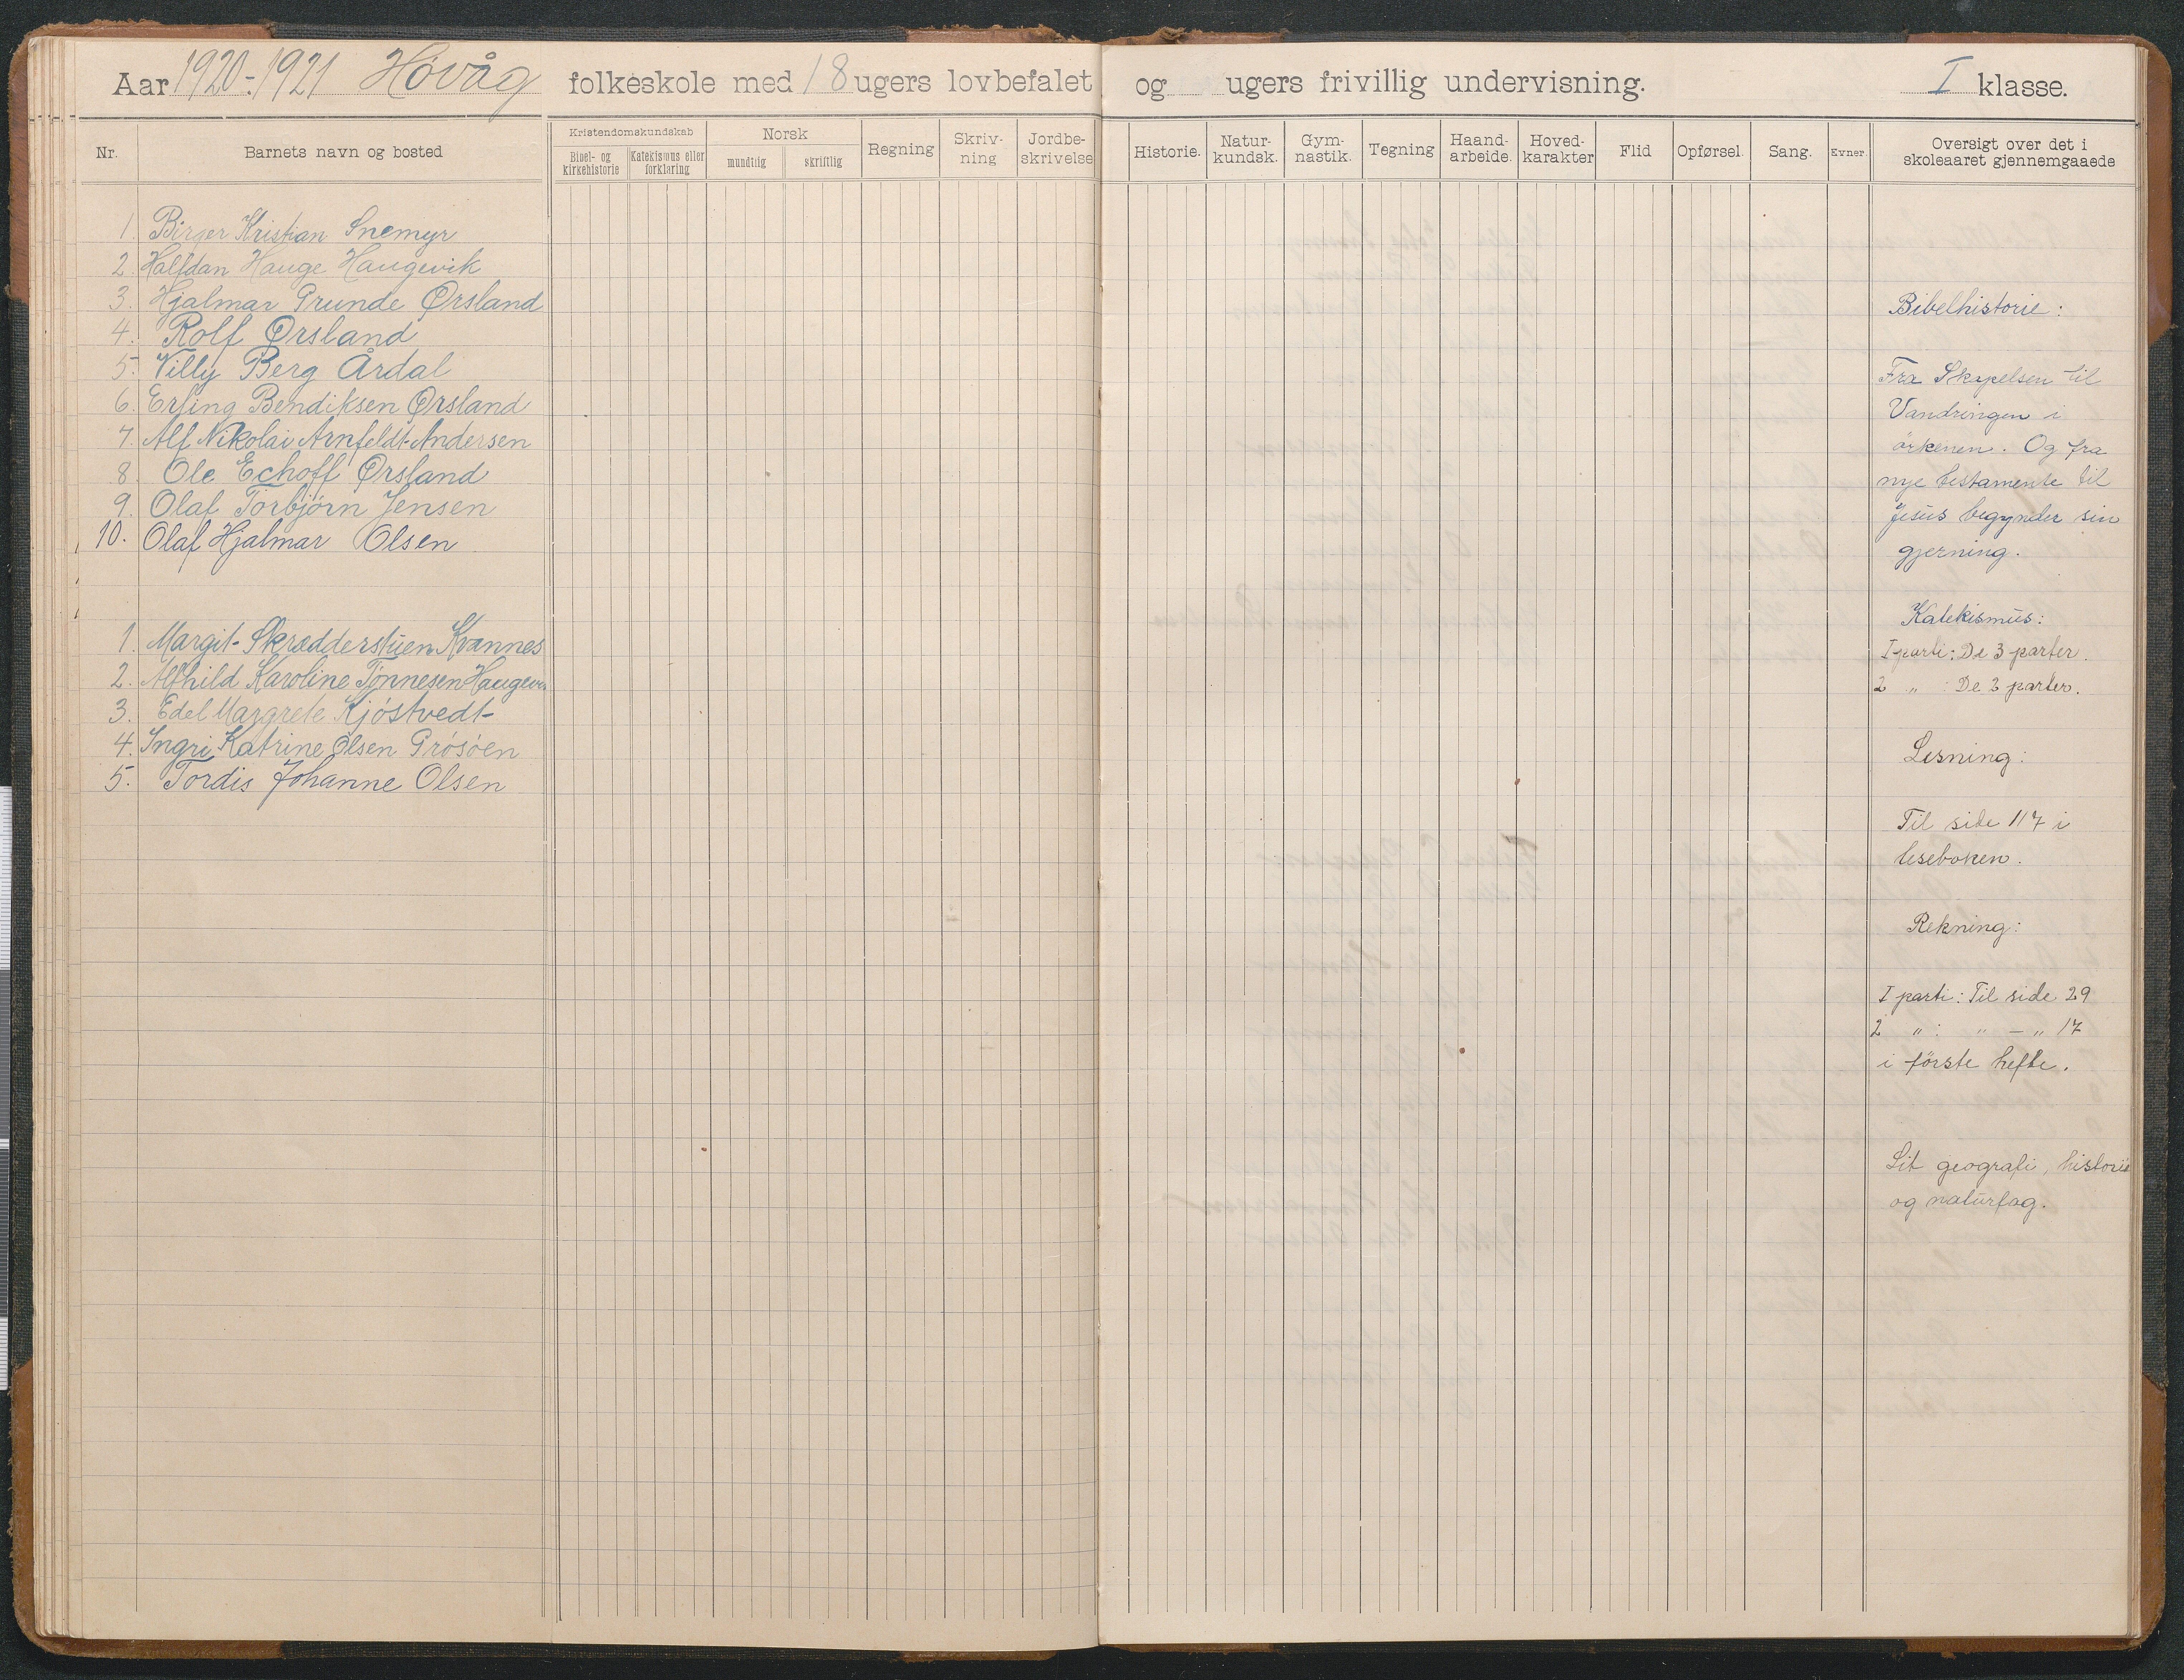 Aar 1920-1921 Høvåg folkeskole med 18 ugers lovbefalet og ugers frivillig undervisning. I klasse.
Nr. Barnets navn og bosted
Kristendomskundskab
Bibel- og kirkehistorie
Katekismus eller forklaring
Norsk
mundtlig
skriftlig
Regning
Skriv-
ning
Jordbe-
skrivelse
Historie.
Natur-
kundsk.
Gym-
nastik.
Tegning
Haand-
arbeide.
Hoved-
karakter
Flid
Opførsel.
Sang.
Evner.
Oversigt over det i
skoleaaret gjennemgaaede
1. Birger Kristian Snemyr
2. Halfdan Hauge Haugevik
3. Hjalmar Prunde Ørsland
4. Rolf Ørsland
5. Villy Berg Årdal
6. Erling Bendiksen Ørsland
7. Alf Nikolai Arnfeldt-Andersen
8. Ole Echoff Ørsland
9. Olaf Torbjørn Jensen
10. Olaf Hjalmar Olsen
1. Margit Skrædderstuen Kvannes
2. Alfhild Karoline Tønnesen
3. Edel Margrete Kjöstvedt
4. Ingri Katrine Olsen Prösöen
5. Tordis Johanne Olsen
Bibelhistorie:
Fra Skapelsen til
Vandringen i
örkenen. Og fra
nye testamente til
Jesus begynder sin
gjerning.
Katekismus:
I parti: De 3 parter.
2 " : De 2 parter.
Lesning:
Til side 117 i
leseboken.
Rekning:
I parti: Til side 29
2 " : " — " 17
i förste hefte.
Lit geografi, historie
og naturfag.